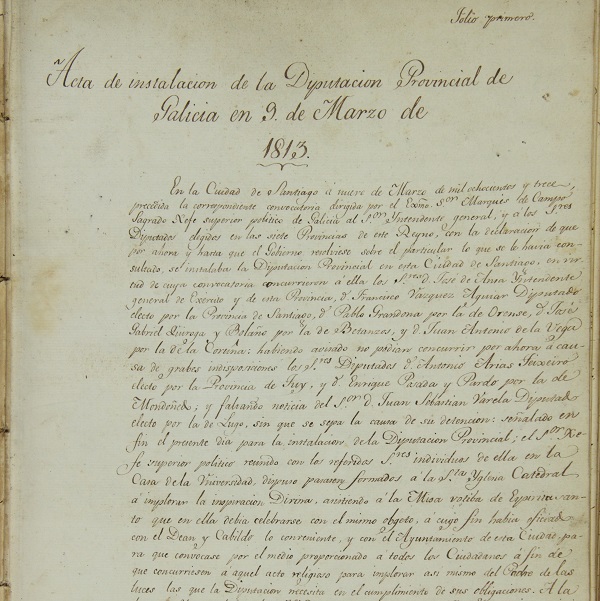 Folio primero.
Acta de instalacion de la Diputacion Provincial de
Galicia en 9. de Marzo de
1813.
En la Ciudad de Santiago á nueve de Marzo de mil ochocientos y trece,
precedida la correspondiente convocatoria dirigida por el Exmo. S.or Marques de Campo
Sagrado Xefe superior politico de Galicia al S.or Yntendente general, y á los S.res
Diputados elegidos en las siete Provincias de este Reyno, con la declaracion de que
por ahora y hasta que el Gobierno resolviese sobre el particular lo que se le havia con-
sultado, se instalaba la Diputacion Provincial en esta Ciudad de Santiago, en vir-
tud de cuya convocatoria concurrieron á ella los S.res D. José de Ansa Yntendente
general de Exército y de esta Provincia, D. Francisco Vazquez Aguiar Diputado
electo por la Provincia de Santiago, D. Pablo Grandona por la de Orense, D. José
Gabriel Quiroga y Bolaño por la de Betanzos, y D. Juan Antonio de la Vega
por la de la Coruña: habiendo avisado no podian concurrir por ahora á cau-
sa de grabes indisposiciones los S.res Diputados D. Antonio Arias Teixeiro
electo por la Provincia de Tuy, y D. Enrique Parada y Pardo por la de
Mondoñedo; y faltando noticia del S.or D. Juan Sebastian Varela Diputado
electo por la de Lugo, sin que se sepa la causa de su detencion: señalado en
fin el presente dia para la instalacion de la Diputacion Provincial; el S.or Xe-
fe superior politico reunido con los referidos S.res individuos de ella en la
Casa de la Universidad, dispuso pasasen formados á la S.ta Yglesia Catedral
á implorar la inspiracion Divina, asistiendo á la Misa votiba de Espiritu San-
to que en ella debia celebrarse con el mismo objeto, á cuyo fin habia oficiado
con el Dean y Cabildo lo conveniente, y con el Ayuntamiento de esta Ciudad, pa-
ra que convocase por el medio proporcionado á todos los Ciudadanos á fin de
que concurriesen á aquel acto religioso para implorar asi mismo del Padre de las
luces las que la Diputacion necesita en el cumplimiento de sus obligaciones. A la